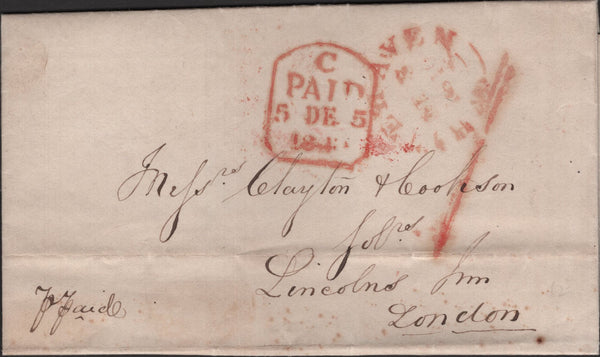 C
PAID
5 DE 5
Messrs Clayton & Cookson
Solrs
Lincolns Inn
London
Paid